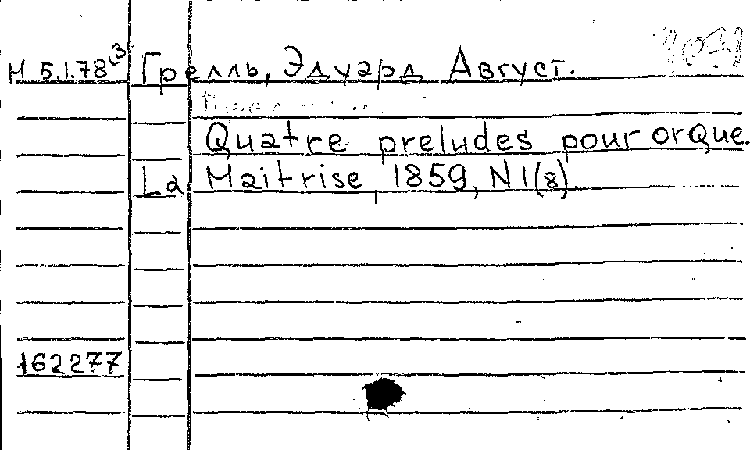 М 5.1.78³ Грелль, Эдуард Август.
Quatre preludes pour orque.
La Maitrise, 1859, N 1(8)
162277